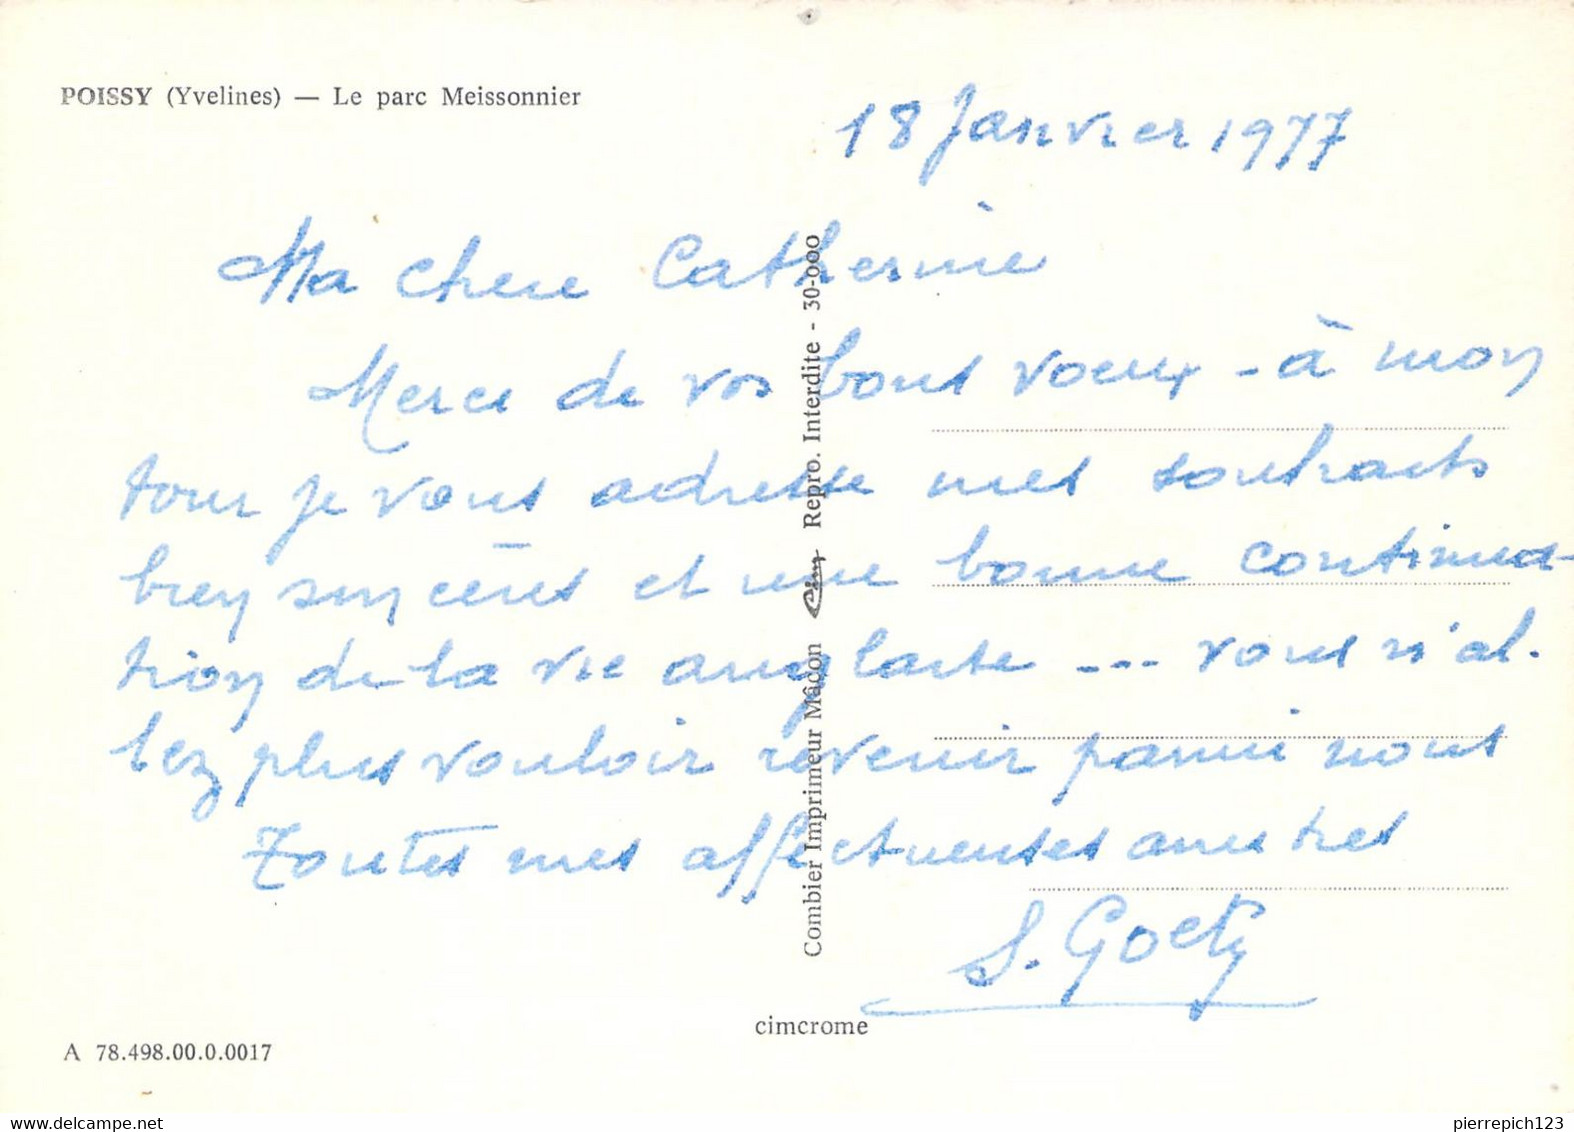 POISSY (Yvelines) — Le parc Meissonnier
18 Janvier 1977
Ma chere Catherine
Merci de vos bons voeux - à mon
tour je vous adresse mes souhaits
bien sincères et une bonne continua-
tion de la vie anglaise --- vous n'al-
lez plus vouloir revenir parmi nous
Toutes mes affectueuses amitiés
S. Goetz
Combier Imprimeur Mâcon Cim Repro. Interdite - 30-000
cimcrome
A 78.498.00.0.0017
pierrepich123